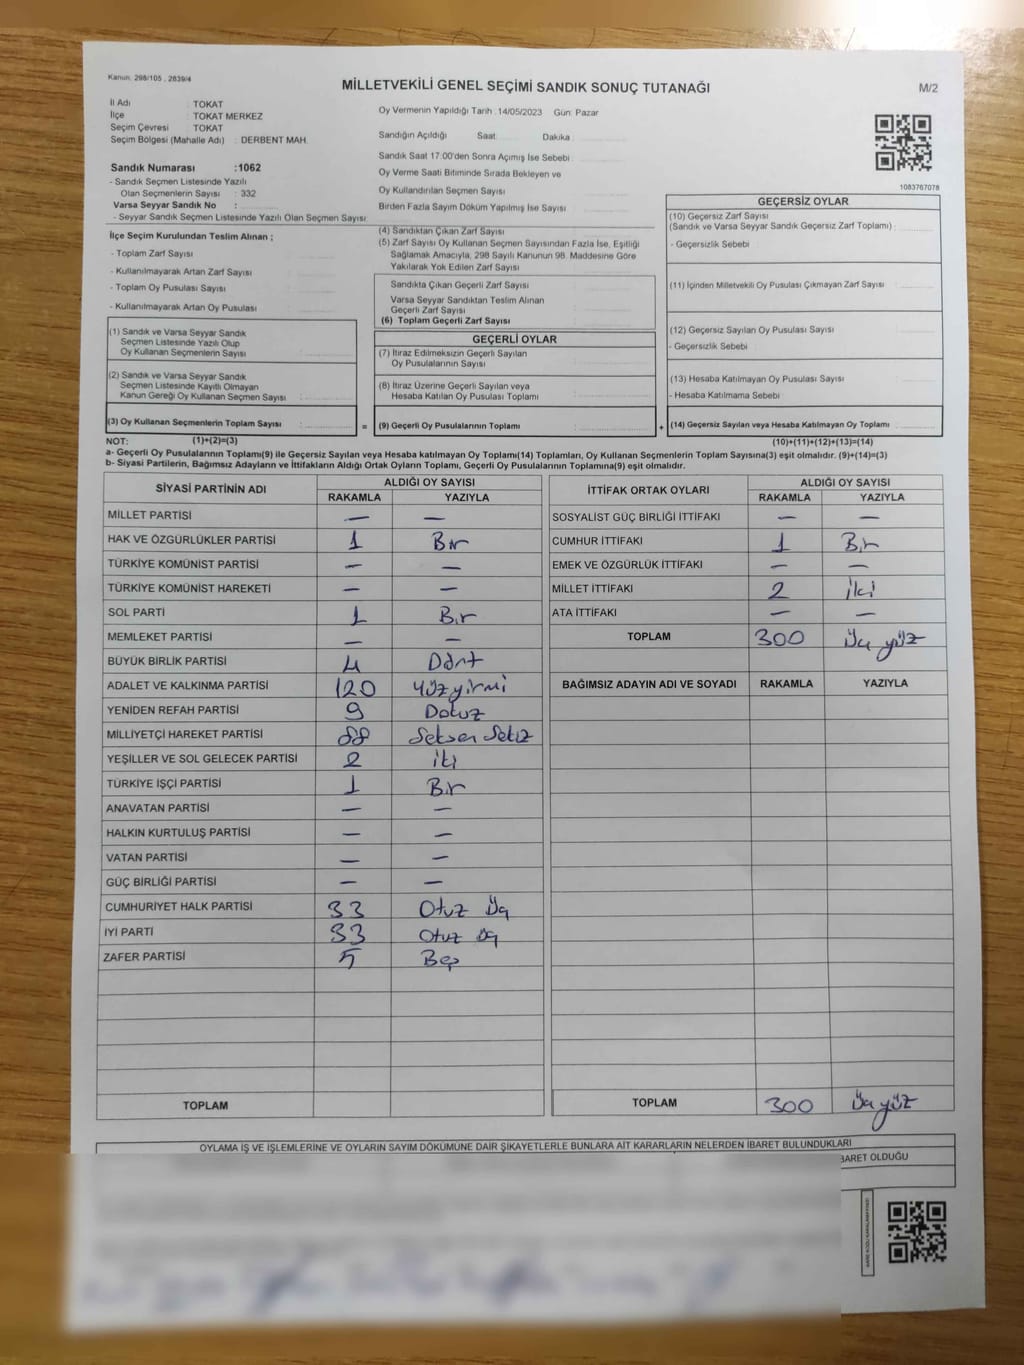 Kanun: 298/105 , 2839/4
MİLLETVEKİLİ GENEL SEÇİMİ SANDIK SONUÇ TUTANAĞI
M/2
İl Adı : TOKAT
İlçe : TOKAT MERKEZ
Seçim Çevresi : TOKAT
Seçim Bölgesi (Mahalle Adı) : DERBENT MAH.
Sandık Numarası :1062
- Sandık Seçmen Listesinde Yazılı
Olan Seçmenlerin Sayısı : 332
Varsa Seyyar Sandık No :
- Seyyar Sandık Seçmen Listesinde Yazılı Olan Seçmen Sayısı:
Oy Vermenin Yapıldığı Tarih : 14/05/2023 Gün: Pazar
Sandığın Açıldığı Saat: Dakika:
Sandık Saat 17.00'den Sonra Açımış İse Sebebi:
Oy Verme Saati Bitiminde Sırada Bekleyen ve
Oy Kullandırılan Seçmen Sayısı
Birden Fazla Sayım Döküm Yapılmış İse Sayısı
1083767078
İlçe Seçim Kurulundan Teslim Alınan ;
- Toplam Zarf Sayısı
- Kullanılmayarak Artan Zarf Sayısı
- Toplam Oy Pusulası Sayısı
- Kullanılmayarak Artan Oy Pusulası
(1) Sandık ve Varsa Seyyar Sandık
Seçmen Listesinde Yazılı Olup
Oy Kullanan Seçmenlerin Sayısı :
(2) Sandık ve Varsa Seyyar Sandık
Seçmen Listesinde Kayıtlı Olmayan
Kanun Gereği Oy Kullanan Seçmen Sayısı :
(3) Oy Kullanan Seçmenlerin Toplam Sayısı :
(4) Sandıktan Çıkan Zarf Sayısı
(5) Zarf Sayısı Oy Kullanan Seçmen Sayısından Fazla İse, Eşitliği
Sağlamak Amacıyla, 298 Sayılı Kanunun 98. Maddesine Göre
Yakılarak Yok Edilen Zarf Sayısı
Sandıkta Çıkan Geçerli Zarf Sayısı
Varsa Seyyar Sandıktan Teslim Alınan
Geçerli Zarf Sayısı
(6) Toplam Geçerli Zarf Sayısı
GEÇERLİ OYLAR
(7) İtiraz Edilmeksizin Geçerli Sayılan
Oy Pusulalarının Sayısı
(8) İtiraz Üzerine Geçerli Sayılan veya
Hesaba Katılan Oy Pusulası Toplamı
= (9) Geçerli Oy Pusulalarının Toplamı
GEÇERSİZ OYLAR
(10) Geçersiz Zarf Sayısı
(Sandık ve Varsa Seyyar Sandık Geçersiz Zarf Toplamı) :
- Geçersizlik Sebebi :
(11) İçinden Milletvekili Oy Pusulası Çıkmayan Zarf Sayısı :
(12) Geçersiz Sayılan Oy Pusulası Sayısı :
- Geçersizlik Sebebi :
(13) Hesaba Katılmayan Oy Pusulası Sayısı :
- Hesaba Katılmama Sebebi :
+ (14) Geçersiz Sayılan veya Hesaba Katılmayan Oy Toplamı :
NOT: (1)+(2)=(3) (10)+(11)+(12)+(13)=(14)
a- Geçerli Oy Pusulasının Toplamı(9) ile Geçersiz Sayılan veya Hesaba katılmayan Oy Toplamı(14) Toplamları, Oy Kullanan Seçmenlerin Toplam Sayısına(3) eşit olmalıdır. (9)+(14)=(3)
b- Siyasi Partilerin, Bağımsız Adayların ve İttifakların Aldığı Ortak Oyların Toplamı, Geçerli Oy Pusulalarının Toplamına(9) eşit olmalıdır.
SİYASİ PARTİNİN ADI ALDIĞI OY SAYISI
RAKAMLA YAZIYLA
MİLLET PARTİSİ — —
HAK VE ÖZGÜRLÜKLER PARTİSİ 1 Bir
TÜRKİYE KOMÜNİST PARTİSİ — —
TÜRKİYE KOMÜNİST HAREKETİ — —
SOL PARTİ 1 Bir
MEMLEKET PARTİSİ — —
BÜYÜK BİRLİK PARTİSİ 4 Dört
ADALET VE KALKINMA PARTİSİ 120 Yüzyirmi
YENİDEN REFAH PARTİSİ 9 Dokuz
MİLLİYETÇİ HAREKET PARTİSİ 88 Seksen Sekiz
YEŞİLLER VE SOL GELECEK PARTİSİ 2 İki
TÜRKİYE İŞÇİ PARTİSİ 1 Bir
ANAVATAN PARTİSİ — —
HALKIN KURTULUŞ PARTİSİ — —
VATAN PARTİSİ — —
GÜÇ BİRLİĞİ PARTİSİ — —
CUMHURİYET HALK PARTİSİ 33 Otuz Üç
İYİ PARTİ 33 Otuz üç
ZAFER PARTİSİ 5 Beş
TOPLAM
İTTİFAK ORTAK OYLARI ALDIĞI OY SAYISI
RAKAMLA YAZIYLA
SOSYALİST GÜÇ BİRLİĞİ İTTİFAKI — —
CUMHUR İTTİFAKI 1 Bir
EMEK VE ÖZGÜRLÜK İTTİFAKI — —
MİLLET İTTİFAKI 2 İki
ATA İTTİFAKI — —
TOPLAM 300 Üç yüz
BAĞIMSIZ ADAYIN ADI VE SOYADI RAKAMLA YAZIYLA
TOPLAM 300 Üç yüz
OYLAMA İŞ VE İŞLEMLERİNE VE OYLARIN SAYIM DÖKÜMÜNE DAİR ŞİKAYETLERLE BUNLARA AİT KARARLARIN NELERDEN İBARET BULUNDUKLARI
BARET OLDUĞU